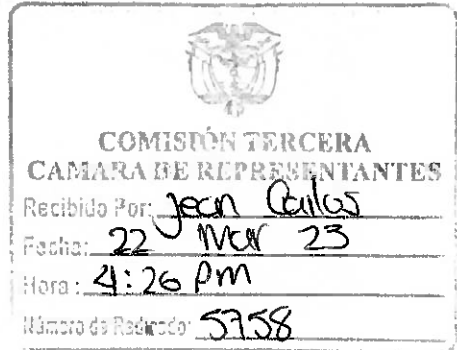 COMISIÓN TERCERA
CAMARA DE REPRESENTANTES
Recibido Por: Jean Carlos
Fecha: 22 Mar 23
Hora: 4:26 pm
Número de Radicado: 5758